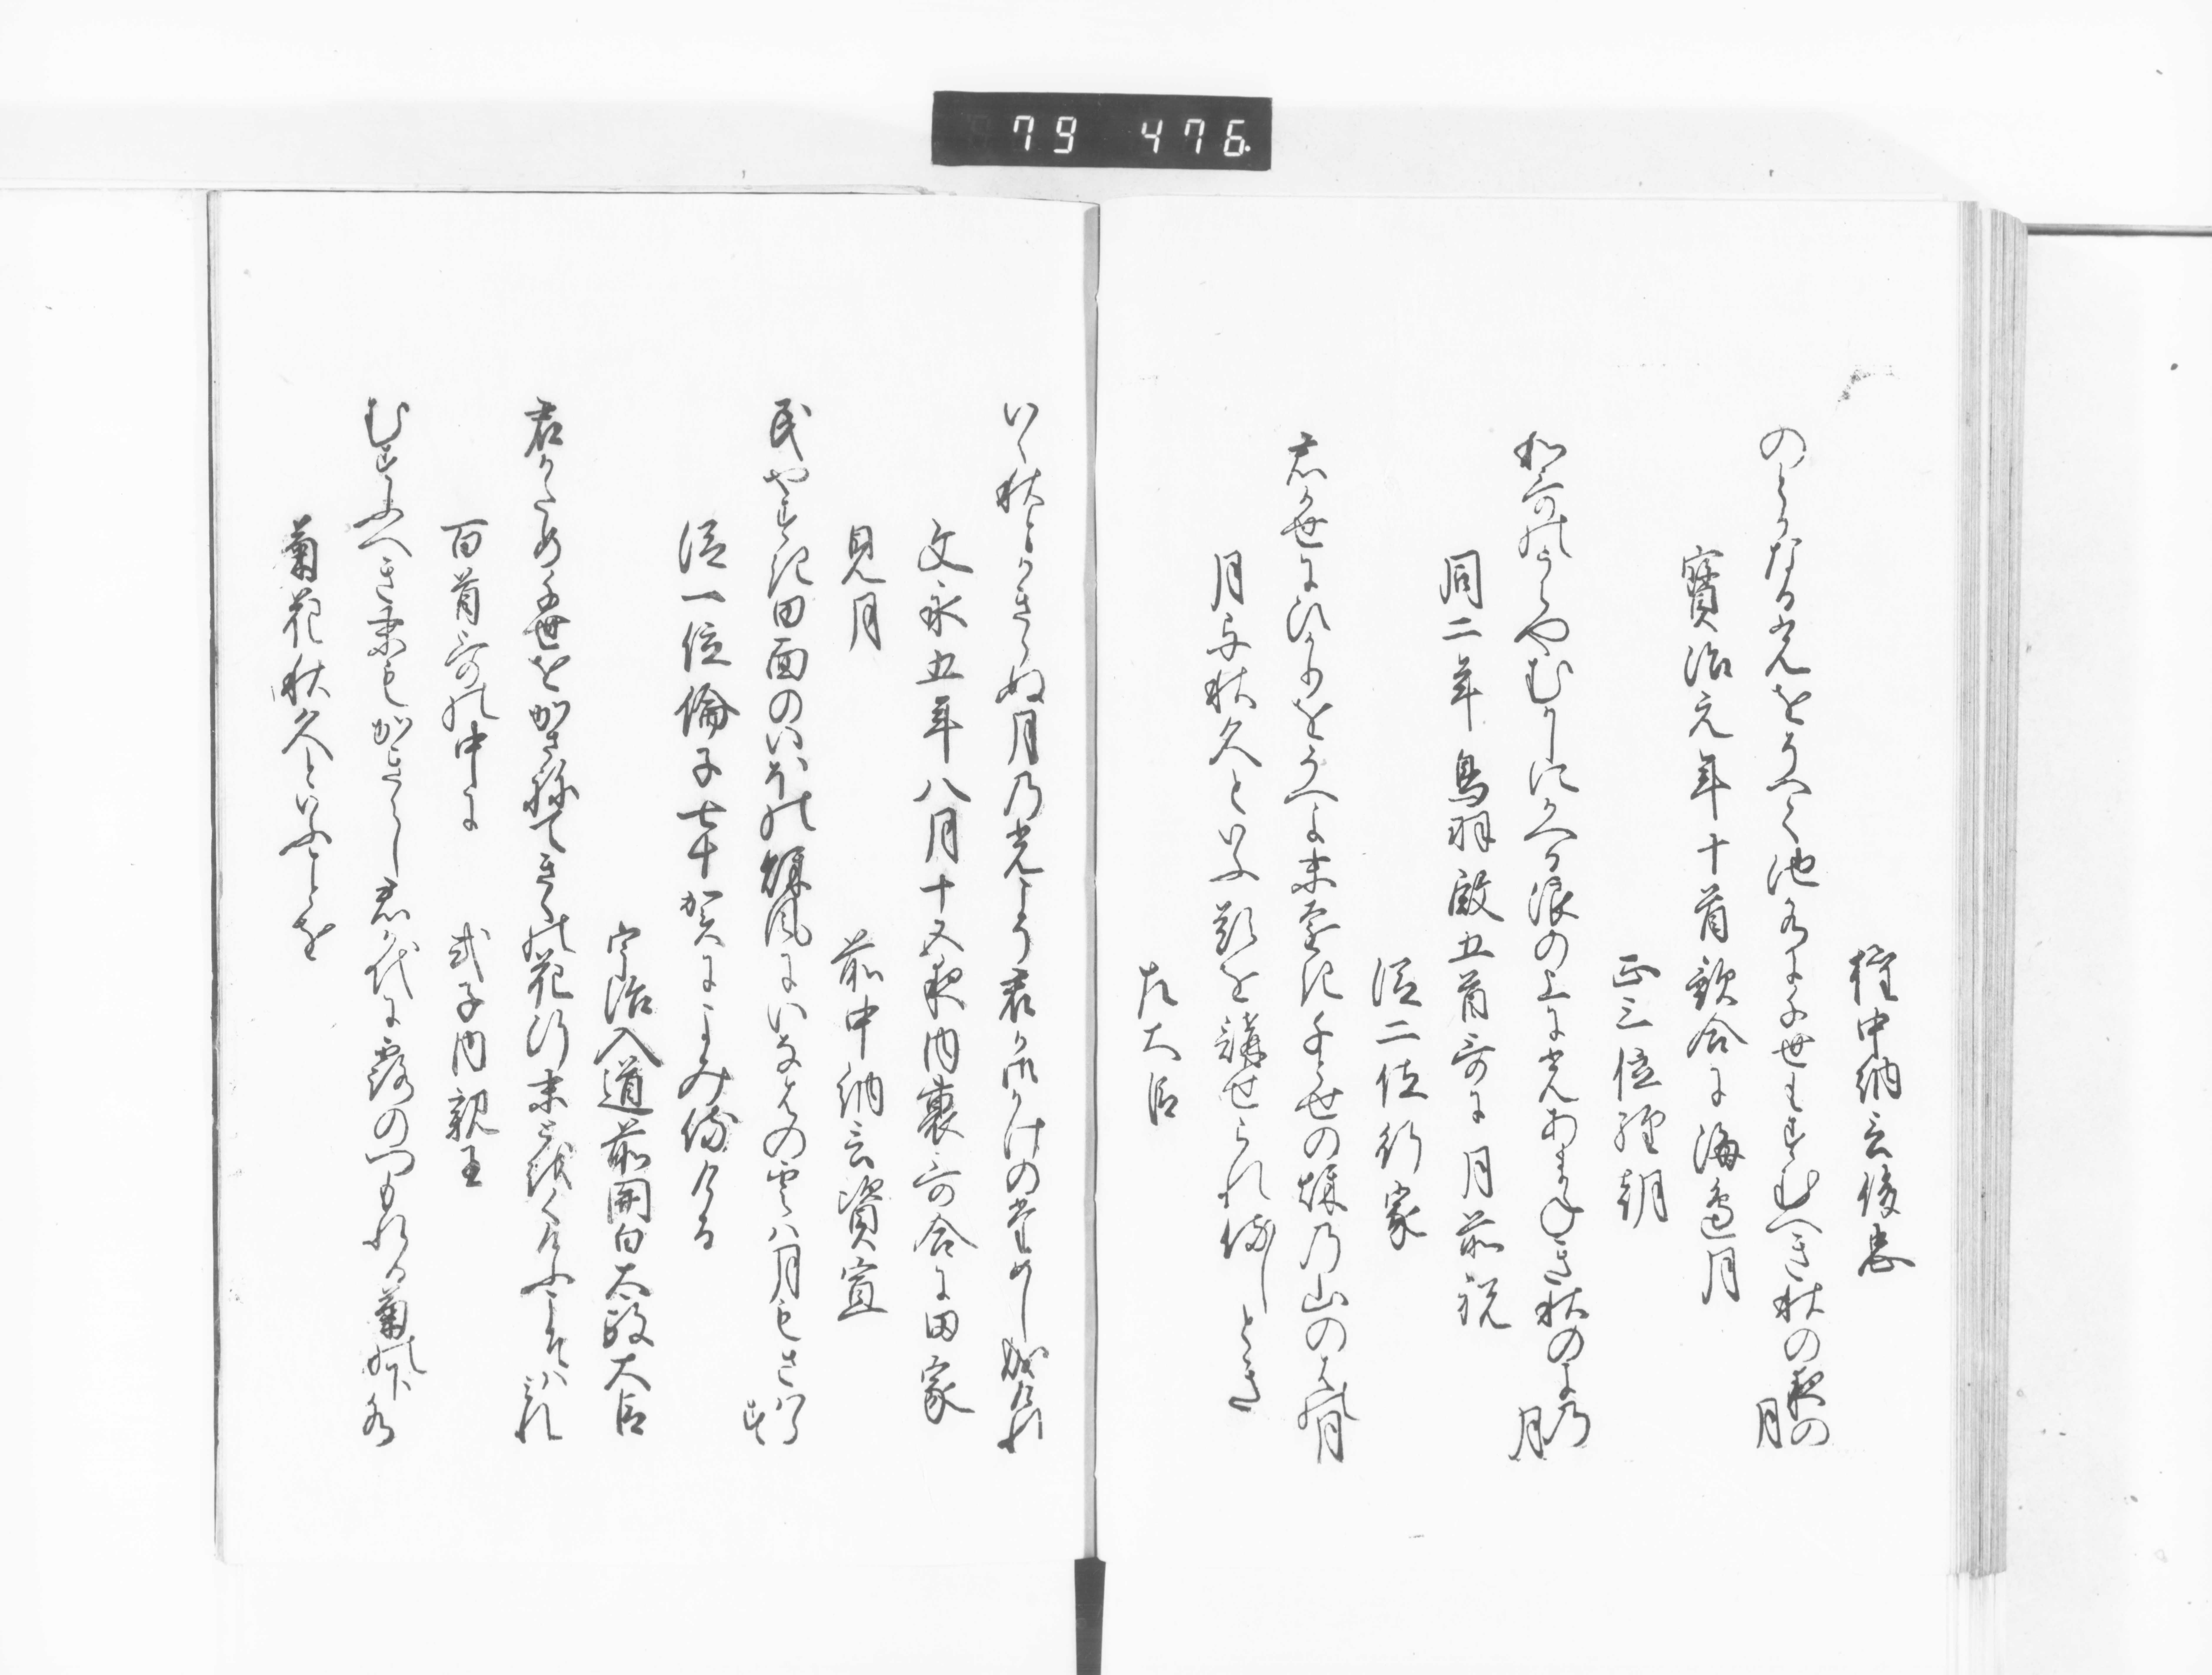 79 476
権中納言俊忠
のとかなる光をそへて池水に千世もすむへき秋の夜の月
宝治元年十首歌合に海辺月
正三位経朝
和哥のうらやむかしにかへる浪の上に光あまねき秋のよの月
同二年鳥羽殿五首哥に月前祝
従二位行家
君か世にひかりをそへよ末遠き千世の秋の山のはの月
月与秋久といふ題を講せられ侍しとき
左大臣
いく秋とかきらぬ月の光こそ君か御かけのためしなりけれ
文永五年八月十五夜内裏哥合に田家
見月 前中納言資宣
民やすき田面のいほの秋風にいなはの雲は月もさはらす
従一位倫子七十賀によみ侍ける
宇治入道前関白太政大臣
君かため千世をかさねてきくの花行末とをくけふこそはみれ
百首哥の中に 式子内親王
むすふへき末もかきらし君か代に露のつもれる菊の下水
菊花秋久といふことを